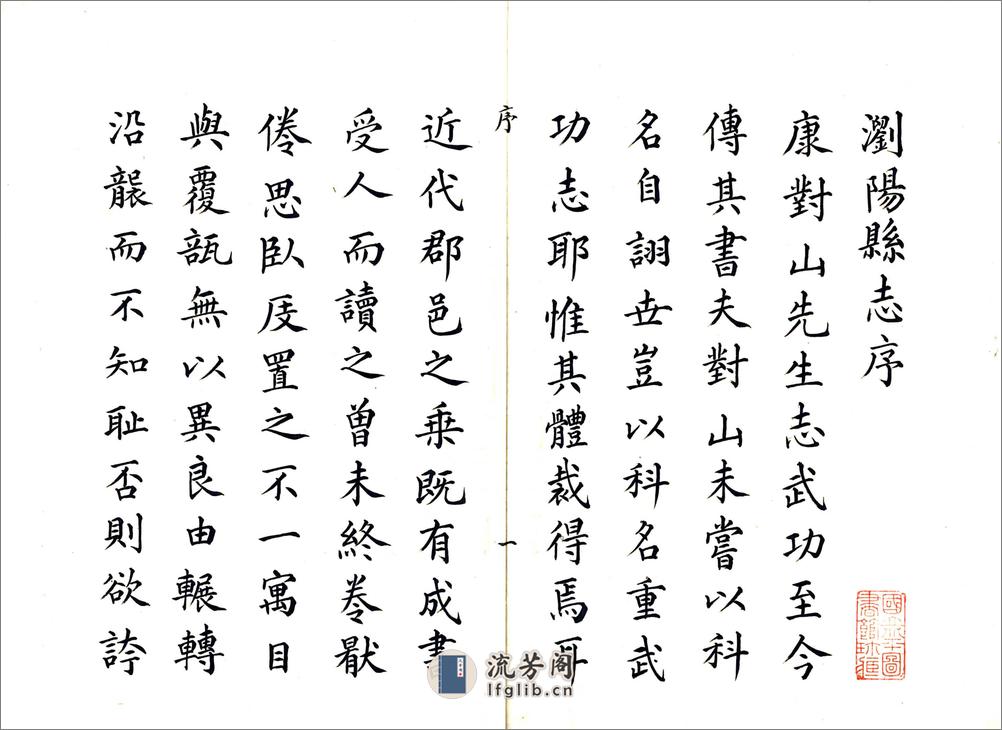 瀏陽縣志序
康對山先生志武功至今
傳其書夫對山未嘗以科
名自詡世豈以科名重武
功志耶惟其體裁得焉耳
序
一
近代郡邑之乘既有成書
受人而讀之曾未終卷厭
倦思臥庋置之不一寓目
與覆瓿無以異良由輾轉
沿襲而不知耻否則欲誇
流芳阁
lfglib.cn